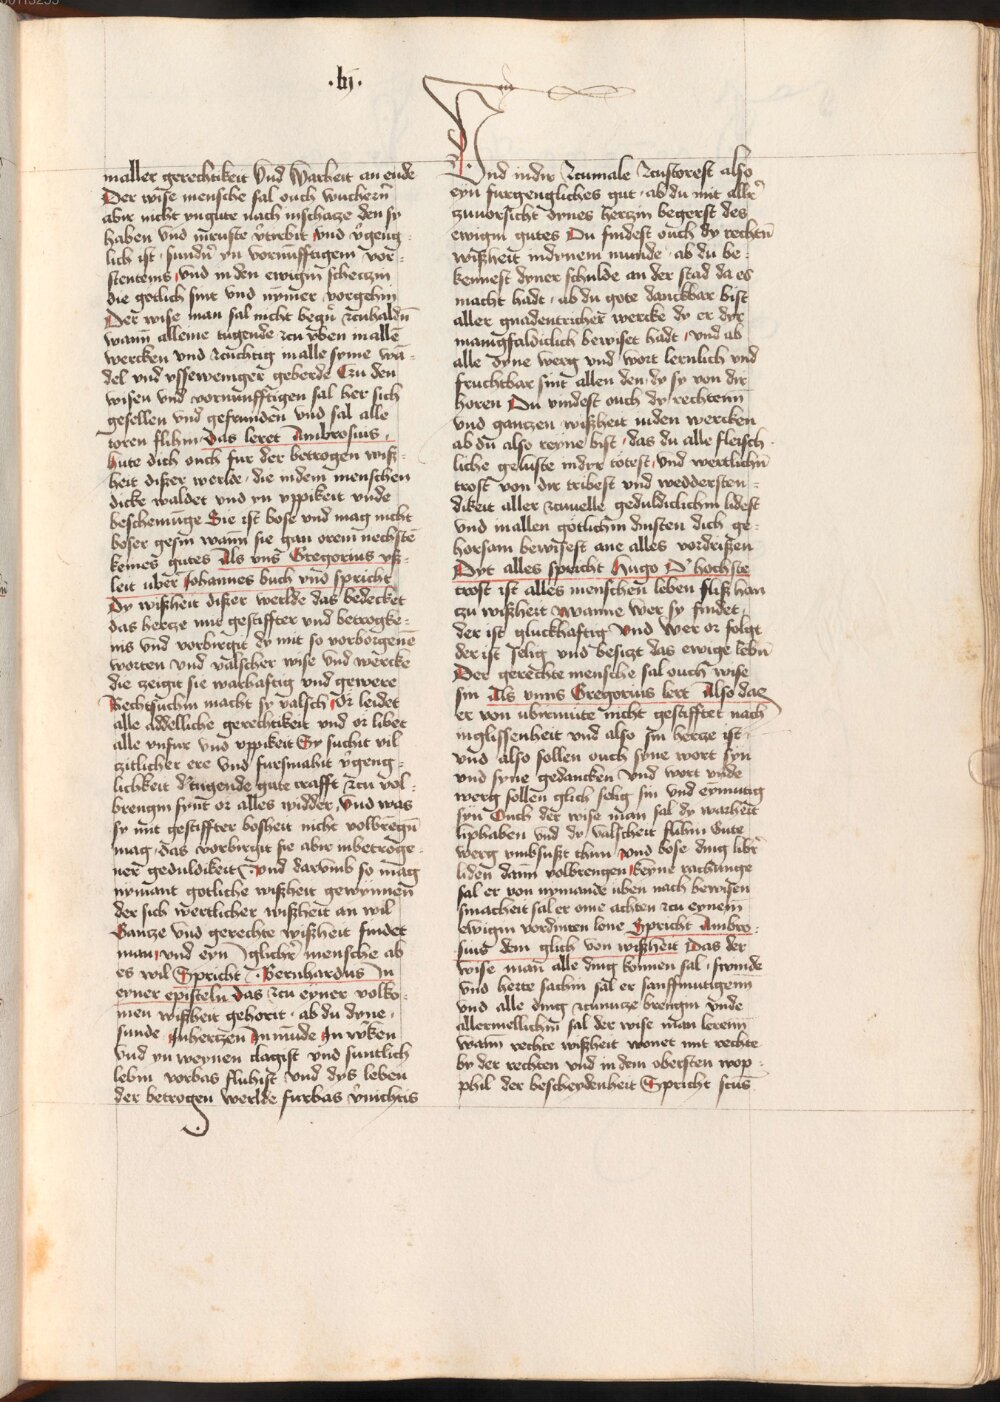 .lij.
in aller gerechtikeit Vnd Warheit an ende
Der wise mensche sal ouch wuchern̄
abir nicht yn gute nach inschacze den sy
haben vnd in ruste v̓trebit vnd v̓geng
lich ist · sundn̄ yn vornunfftigem vor-
stentenis vnd in den ewigin̄ scheczin
die gotlich sint vnd nym̄er vorgehin
Der wise man sal nicht begn̓ czuhaldn̄
wann alleine tugende czu vben in allē
wercken vnd czuchtig in alle syme wā-
del vnd vsseweniger geberde Czu den
wisen vnd vornunfftigen sal her sich
gesellen vnd gefrunden vnd sal alle
toren flihin das leret Ambrosius
hute dich ouch fur der betrogen wisz-
heit diszer werlde · die in dem menschen
dicke waldet vnd yn vppikeit vnde
bescheinunge Sie ist bose vnd mag nicht
boser gesin wann sie gan orem nechstē
keines gutes Als vns Gregorius vsz-
leit uber Johannes buch vnd spricht
Dy wiszheit diszer werlde das bedecket
das hercze mit gestiffter vnd betrogke-
nis vnd vorbirgit dy mit so vorborgenē
worten vnd valscher wise vnd wercke
die zeigit sie warhaftig vnd gewere
Rechtsuchin macht sy valsch Or leidet
alle addelliche gerechtikeit vnd or libet
alle vnfur vnd vppikeit Sy suchit vil
zitlicher ere vnd fursmahit v̓geng-
lichkeit d' tugende gute crafft czu vol-
brengin synt or alles widder vnd was
sy mit gestiffter bosheit nicht volbregn̄
mag · das vorbirgit sie abir in betroge-
ner geduldikeit vnd darumb so mag
nymant gotliche wiszheit gewynnen
der sich wertlicher wiszheit an wil
Gantze vnd gerechte wiszheit findet
man vnd eyn iglichr̓ mensche ab
es wil Spricht · Bernhardus In
eyner episteln das czu eyner volko-
men wiszheit gehorit · ab du dyne
sunde In herczen In munde In w̓ken
vnd yn weynen clagist vnd suntlich
lebin vorbas fluhist vnd dys leben
der betrogen werlde furbas v̓nichtis
Vnd in dir czumale czustorest also
eyn furgengliches gut · ab du mit allr̓
zuuorsicht dynes herczin begerst des
ewigin gutes Du findest ouch dy rechtin̄
wiszheit in dynem munde · ab du be-
kennest dyner schulde an der stad da es
macht hadt · ab du gote danckbar bist
aller gnadentricher wercke dy er dyr
manigfaldiclich bewiset hadt · vnd ab
alle dyne werg vnd wort lernlich vnd
fruchtbar sint allen den dy sy von dir
horen Du vindest ouch dy rechtenn
vnd gantzen wiszheit in den wercken
ab du also reyne bist · das du alle fleisch-
liche geluste in dyr totest vnd wertlichn̄
trost von dir tribest vnd weddersten-
dikeit aller czuuelle geduldiclichin lidest
vnd in allen gotlichin dinsten dich ge-
horsam bewisest ane alles vordriszen
Dyt alles spricht Hugo D' hochste
trost ist alles menschen leben flisz han
zu wiszheit Wanne wer sy findet
der ist gluckhaftig vnd wer or folgt
der ist selig vnd besiczt das ewige lebn̄
Der gerechte mensche sal ouch wise
sin Als vnns Gregorius lert Also das
er von ubirmute nicht gestifftet nach
in glissenheit vnd also sin hercze ist
vnd also sollen ouch syne wort syn
vnd syne gedancken vnd wort vnde
werg sollen glich selig sin vnd eynmutig
syn Ouch der wise man sal dy warheit
liphaben vnd dy valscheit fluhin Gute
werg vmbsuszt thun vnd bose ding libr̓
liden dann volbrengen Keyne rachunge
sal er von nymande uben nach bewisen
smacheit sal er ome achten czu eynem
ewigin vordinten lone Spricht Ambro-
sius dem glich von wiszheit Das der
wise man alle ding konnen sal · fromde
vnd herte sachin sal er sanfftmutigenn
vnd alle ding czunucze brengin vnde
allermellichin sal der wise man lerenn
wann rechte wiszheit wonet mit rechte
by der rechten vnd in dem obersten wop-
phil der bescheydenheit Spricht scūs